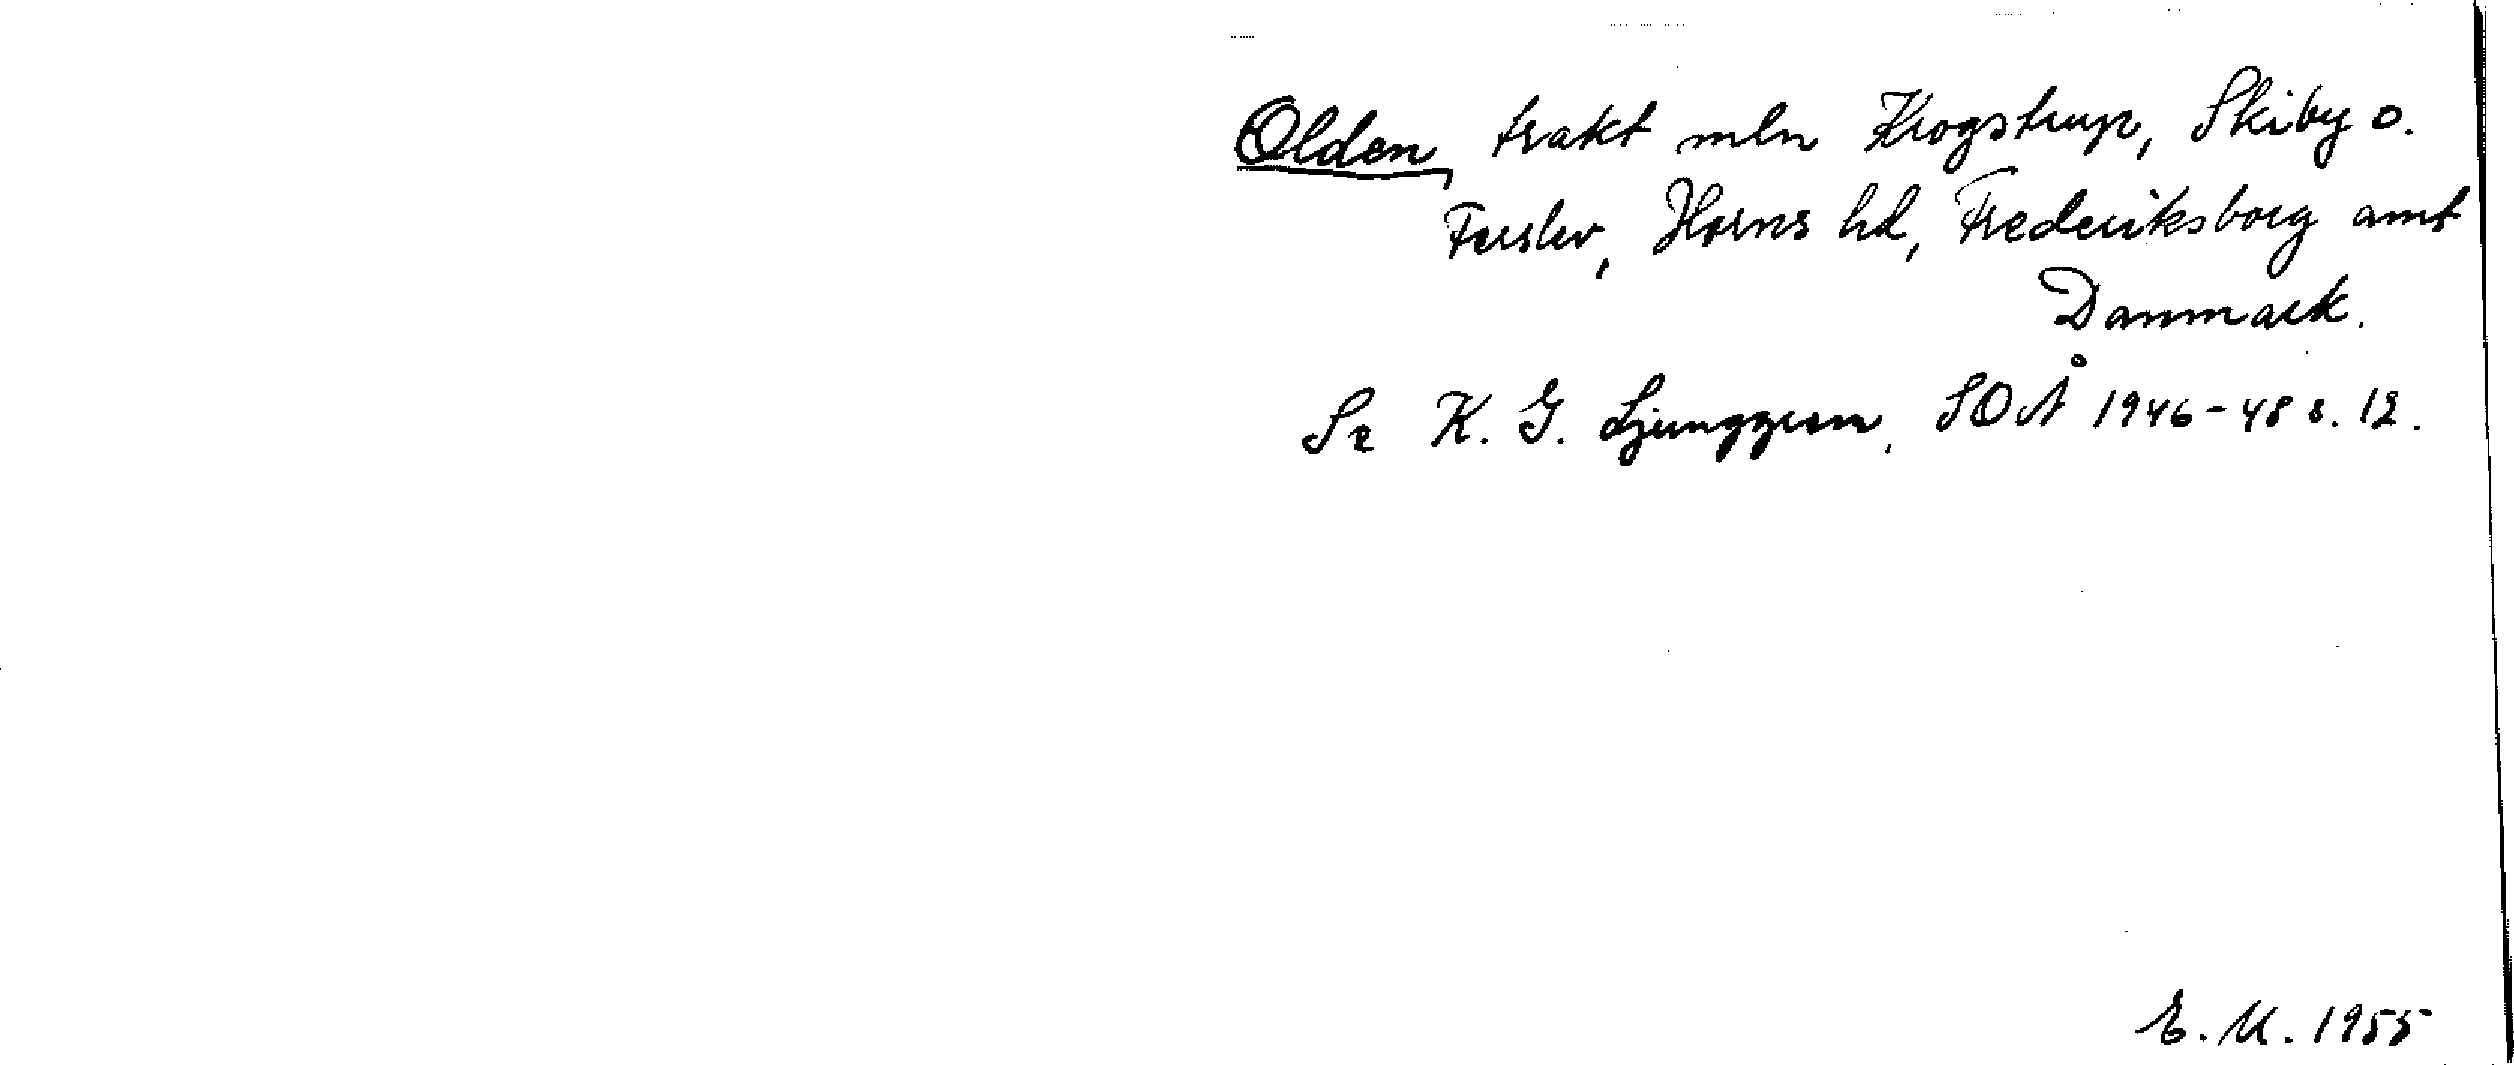 Olden, trakt mln Krogstrup, Skiby o.
Ferslev, Horns hd, Frederiksborg amt
Danmark.
Se K. G. Ljunggren, SOÅ 1946-48 s. 12.
E. U. 1955